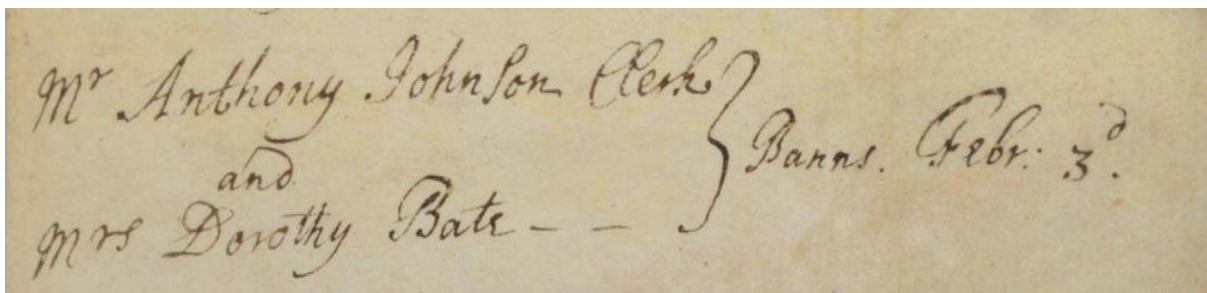 Mr Anthony Johnson Clerk
and
Mrs Dorothy Bate - -
} Banns. Febr: 3d.